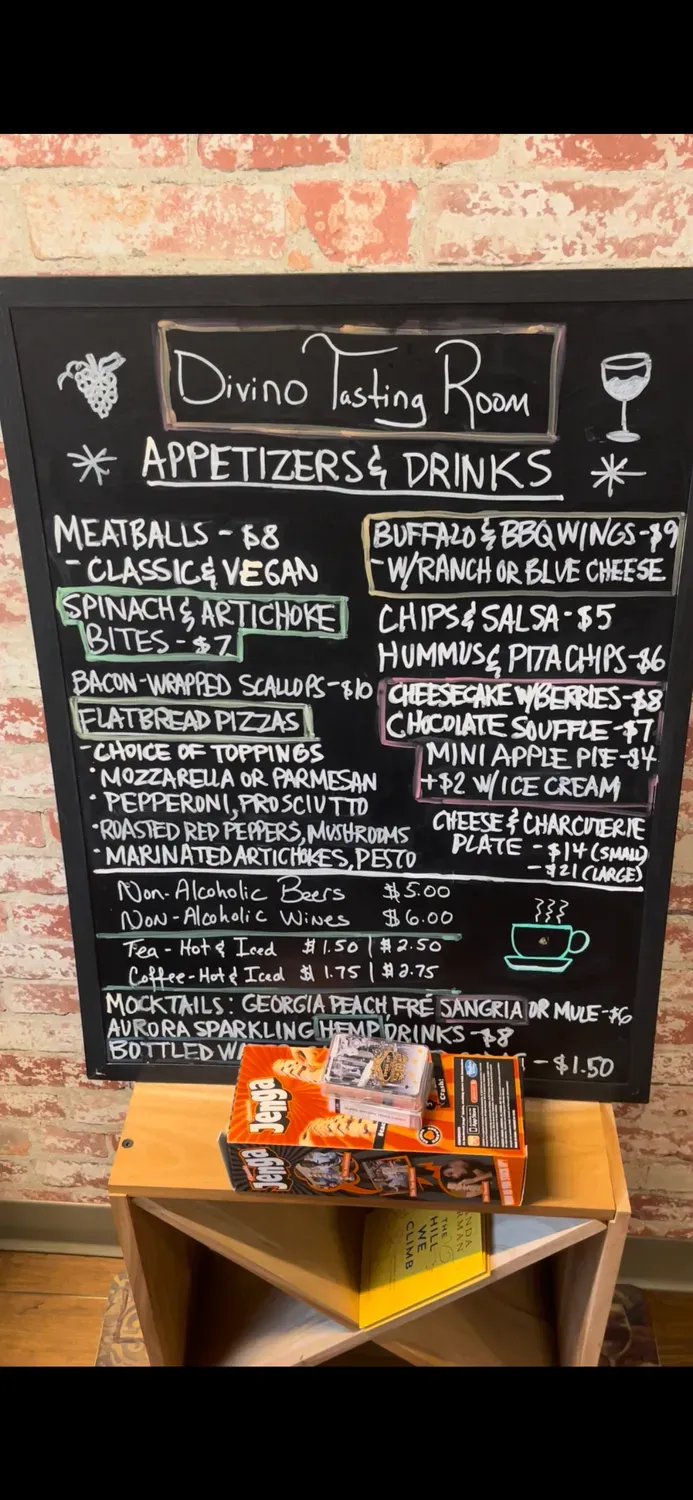 Divino Tasting Room
APPETIZERS & DRINKS
MEATBALLS - $8
- CLASSIC & VEGAN
SPINACH & ARTICHOKE
BITES - $7
BACON-WRAPPED SCALLOPS - $10
FLATBREAD PIZZAS
- CHOICE OF TOPPINGS
• MOZZARELLA OR PARMESAN
• PEPPERONI, PROSCIUTTO
• ROASTED RED PEPPERS, MUSHROOMS
• MARINATED ARTICHOKES, PESTO
BUFFALO & BBQ WINGS - $9
- W/RANCH OR BLUE CHEESE
CHIPS & SALSA - $5
HUMMUS & PITA CHIPS - $6
CHEESECAKE W/BERRIES - $8
CHOCOLATE SOUFFLE - $7
MINI APPLE PIE - $4
+$2 W/ICE CREAM
CHEESE & CHARCUTERIE
PLATE - $14 (SMALL)
- $21 (LARGE)
Non-Alcoholic Beers $5.00
Non-Alcoholic Wines $6.00
Tea - Hot & Iced $1.50 | $2.50
Coffee - Hot & Iced $1.75 | $2.75
MOCKTAILS: GEORGIA PEACH, FRÉ SANGRIA OR MULE - $6
AURORA SPARKLING HEMP DRINKS - $8
BOTTLED - $1.50
Jenga
Jenga
Hasbro
Crash!
THE
HILL
WE
CLIMB